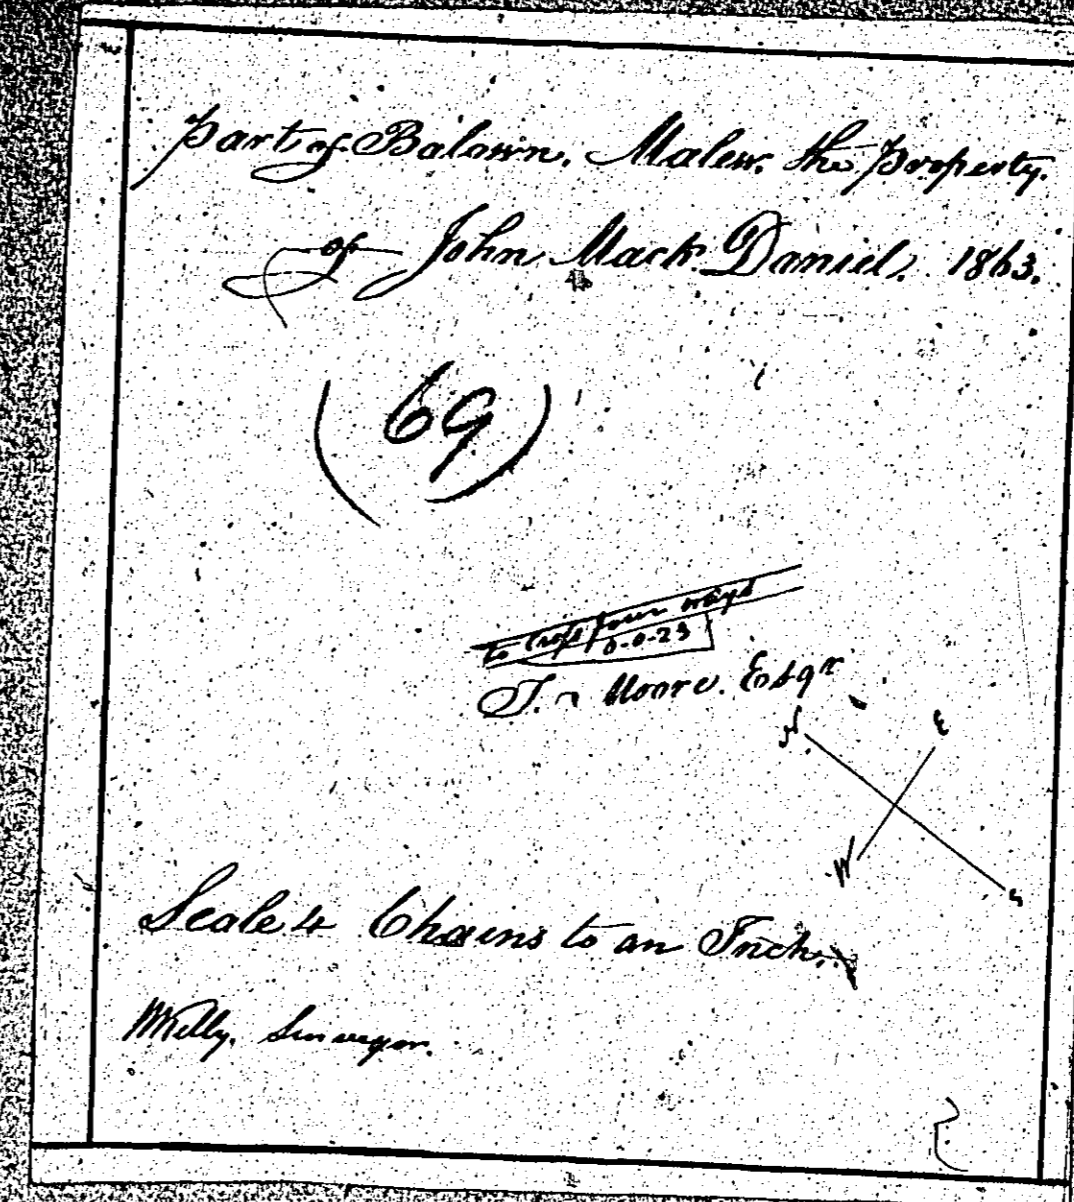 Part of Balown. Malew. The Property.
of John Mack Daniel. 1863.
(69)
to Cross four ways
0-0-23
T. Moore. Esqr
N.
E
W
S
Scale 4 Chains to an Inch.
WKelly. Surveyor.